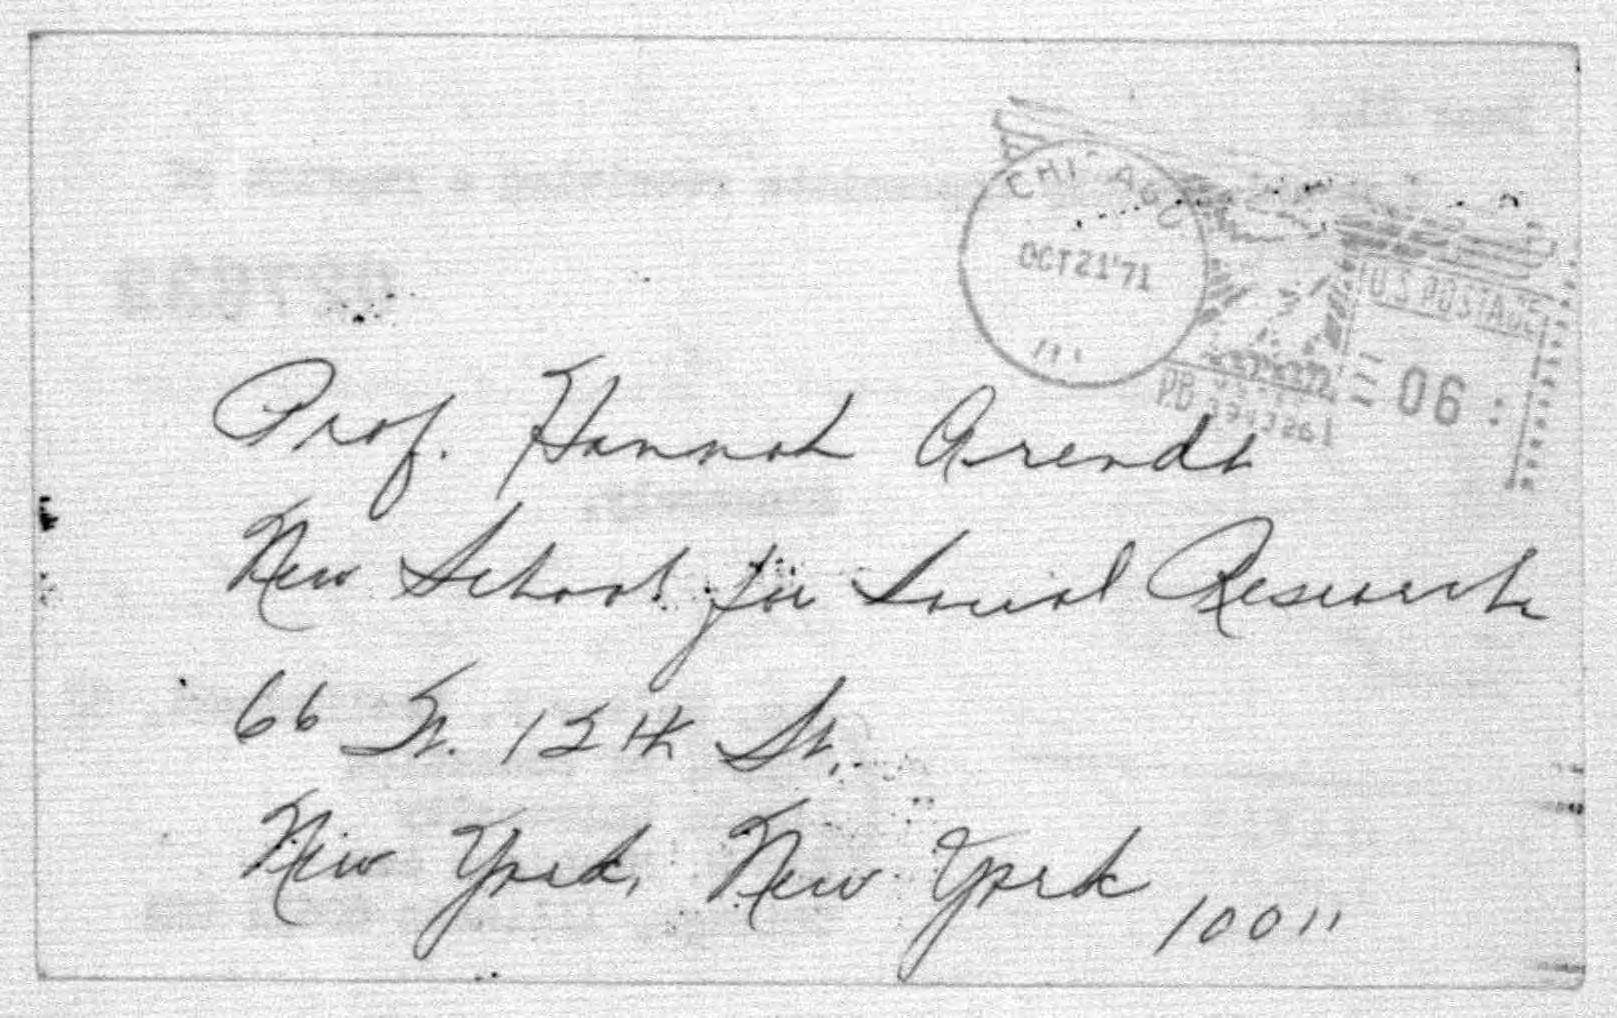 CHICAGO
OCT 21 '71
ILL
U.S. POSTAGE
06
PB
Prof. Hannah Arendt
New School for Social Research
66 W. 12th St.
New York, New York 10011